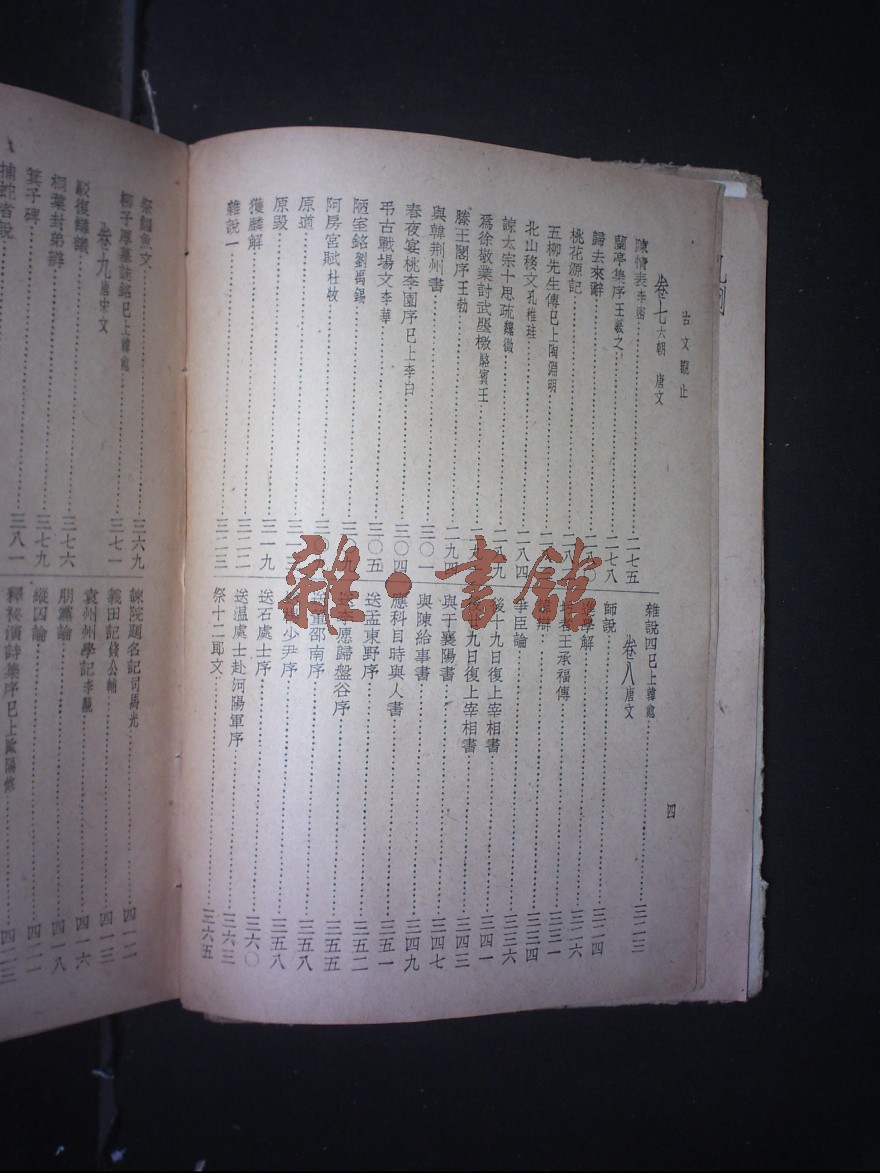 古文觀止
卷七 六朝 唐文
陳情表 李密……二七五
蘭亭集序 王羲之……二七八
歸去來辭……二八〇
桃花源記……二八
五柳先生傳 已上陶淵明……二八
北山移文 孔稚珪……二八四
諫太宗十思疏 魏徵……二八九
爲徐敬業討武曌檄 駱賓王……二九
滕王閣序 王勃……二九四
與韓荆州書……三〇一
春夜宴桃李園序 已上李白……三〇四
弔古戰場文 李華……三〇五
陋室銘 劉禹錫……三〇
阿房宮賦 杜牧……三
原道……三
原毀……三一九
獲麟解……三二二
雜說一……三二三
雜說四 已上韓愈……三二三
卷八 唐文
師說……三二四
進學解……三二六
者王承福傳……三三一
辯……三三四
爭臣論……三三六
後十九日復上宰相書……三四一
後 九日復上宰相書……三四三
與于襄陽書……三四七
與陳給事書……三四九
應科目時與人書……三五一
送孟東野序……三五二
送李愿歸盤谷序……三五五
送董邵南序……三五八
少尹序……三五八
送石處士序……三六〇
送溫處士赴河陽軍序……三六三
祭十二郎文……三六五
四
祭鱷魚文……三六九
柳子厚墓誌銘 已上韓愈……三七一
卷九 唐宋文
駁復讎議……三七六
桐葉封弟辨……三七九
箕子碑……三八一
捕蛇者說
諫院題名記 司馬光……四一二
義田記 錢公輔……四一三
袁州州學記 李覯……四一六
朋黨論……四一八
縱囚論……四二一
釋祕演詩集序 已上歐陽修……四二三
雜·書館